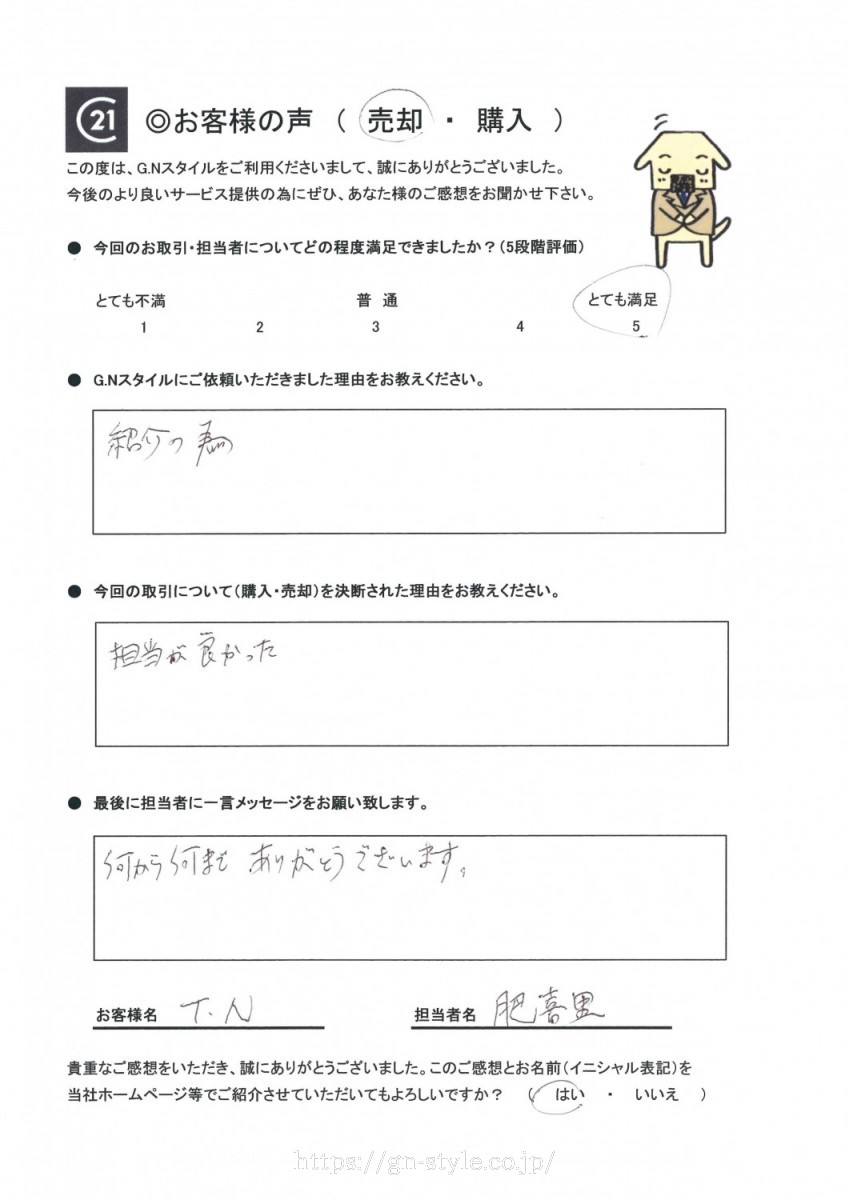 C21 ◎お客様の声 ( 売却 ・ 購入 )
この度は、G.Nスタイルをご利用くださいまして、誠にありがとうございました。
今後のより良いサービス提供の為にぜひ、あなた様のご感想をお聞かせ下さい。
● 今回のお取引・担当者についてどの程度満足できましたか？(5段階評価)
とても不満 普 通 とても満足
1 2 3 4 5
● G.Nスタイルにご依頼いただきました理由をお教えください。
紹介の為
● 今回の取引について(購入・売却)を決断された理由をお教えください。
担当が良かった
● 最後に担当者に一言メッセージをお願い致します。
何から何まで ありがとうございます。
お客様名 T.N 担当者名 肥喜里
貴重なご感想をいただき、誠にありがとうございました。このご感想とお名前(イニシャル表記)を
当社ホームページ等でご紹介させていただいてもよろしいですか？ ( はい ・ いいえ )
https://gn-style.co.jp/